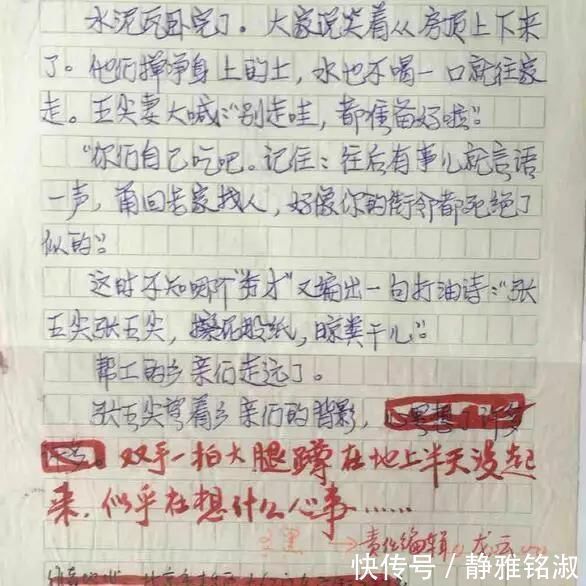 水泥瓦卧完了。大家说笑着从房顶上下来
了。他们掸净身上的土,水也不喝一口就往家
走。五尖妻大喊:“别走哇,都准备好啦”。
“你们自己吃吧。记住:往后有事儿就言语
一声,甭回老家找人,好像你的街邻都死绝了
似的”。
这时不知哪个“秀才”又编出一句打油诗:“张
五尖张五尖,擦屁股纸,晾粪干儿”。
帮工的乡亲们走远了。
张五尖望着乡亲们的背影,心里想了许多
双手一拍大腿蹲在地上半天没起
来,似乎在想什么心事……
责任编辑 龙云
快传号/静雅铭淑